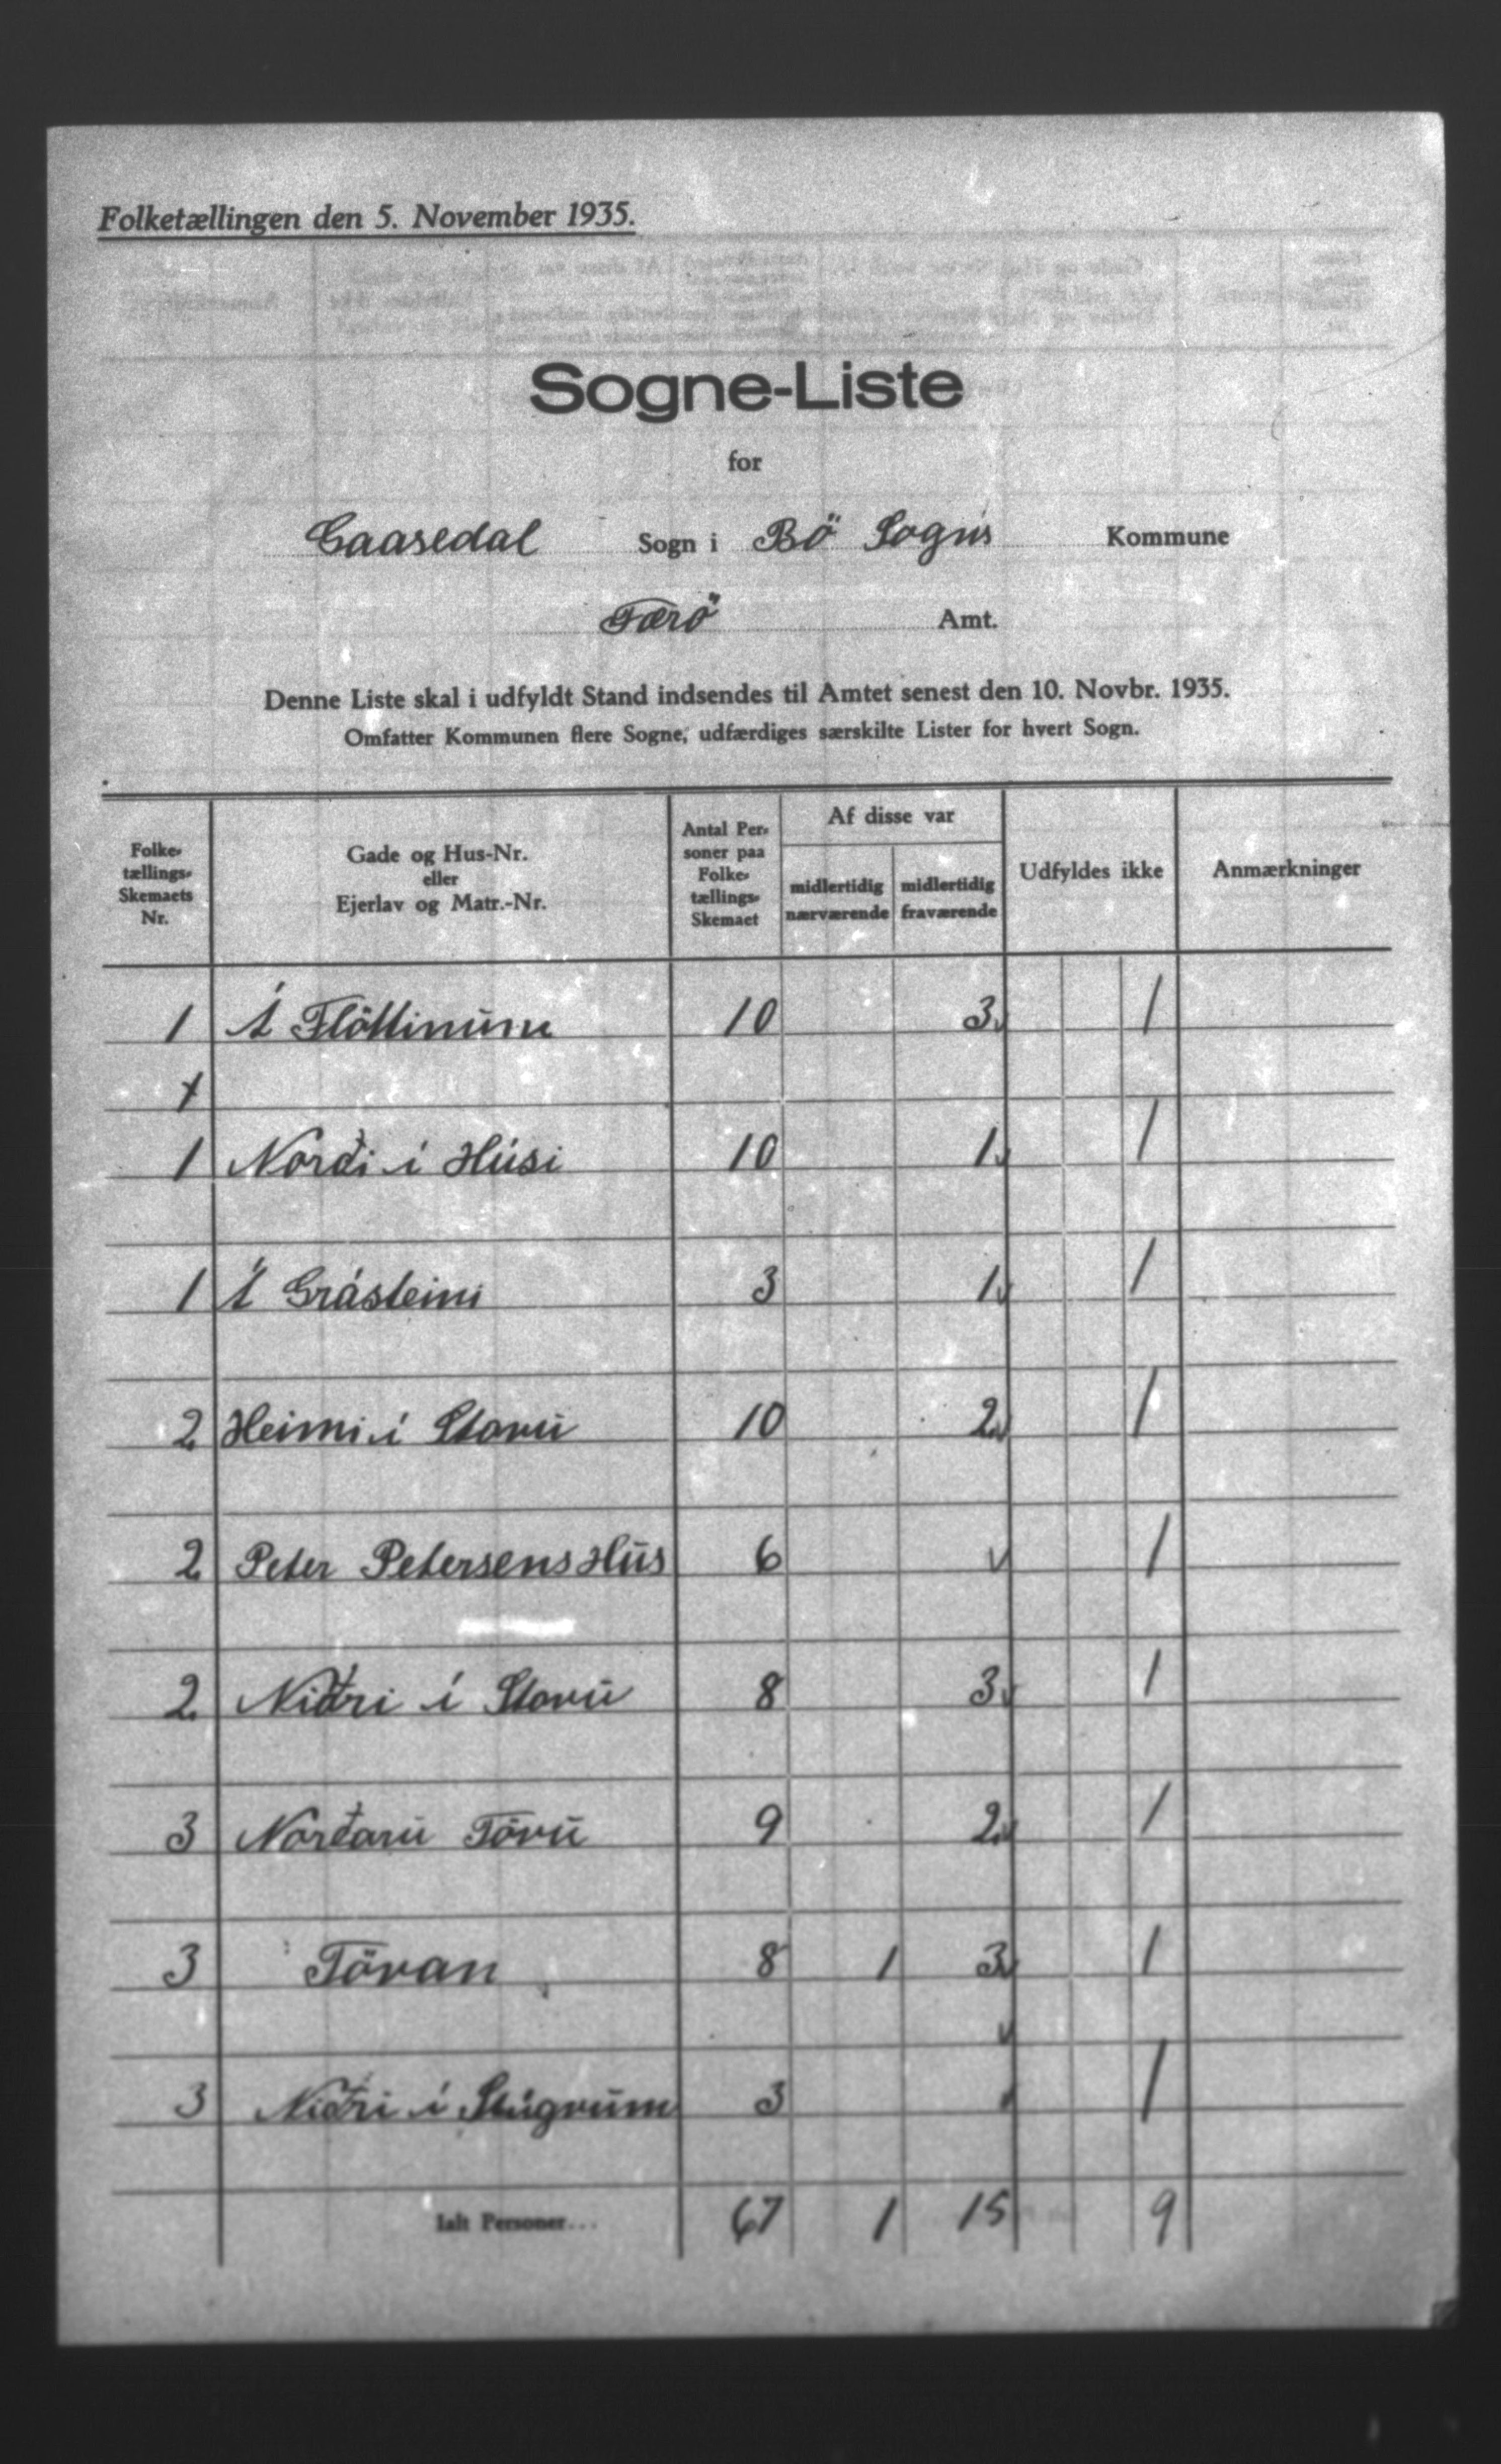 Folketællingen den 5. November 1935.
Sogne-Liste
for
Gaasedal Sogn i Bö Sogns Kommune
Færö Amt.
Denne Liste skal i udfyldt Stand indsendes til Amtet senest den 10. Novbr. 1935.
Omfatter Kommunen flere Sogne, udfærdiges særskilte Lister for hvert Sogn.
Folke-tællings-Skemaets Nr. Gade og Hus-Nr. eller Ejerlav og Matr.-Nr. Antal Personer paa Folke-tællings-Skemaet Af disse var midlertidig nærværende midlertidig fraværende Udfyldes ikke Anmærkninger
1 Á Flöttinum 10 3 1
1 Norði í Húsi 10 1 1
1 Á Grásteini 3 1 1
2 Heimi í Stovu 10 2 1
2 Peter Petersens Hus 6 1
2 Niðri í Stovu 8 3 1
3 Norðaru Tövu 9 2 1
3 Tövan 8 1 3 1
3 Niðri í 3 1
Ialt Personer... 67 1 15 9